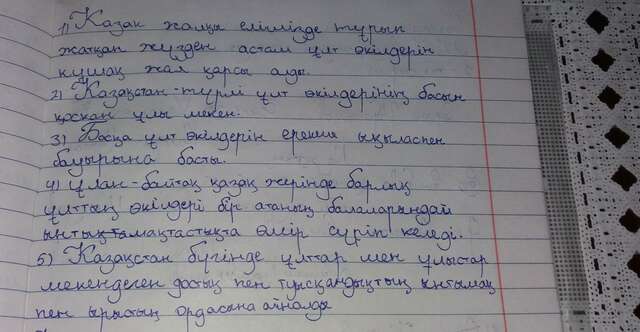 1) Қазақ халқы елімізде тұрып
жатқан жүзден астам ұлт өкілдерін
құшақ жая қарсы алды.
2) Қазақстан-түрлі ұлт өкілдерінің басын
қосқан ұлы мекен.
3) Басқа ұлт өкілдерін ерекше ықыласпен
бауырына басты.
4) Ұлан-байтақ қазақ жерінде барлық
ұлттың өкілдері бір атаның балаларындай
ынтықтамақтастықта өмір сүріп келеді.
5) Қазақстан бүгінде ұлттар мен ұлыстар
мекендеген достық пен туысқандықтың ынтымақ
пен ырыстың ордасына айналды